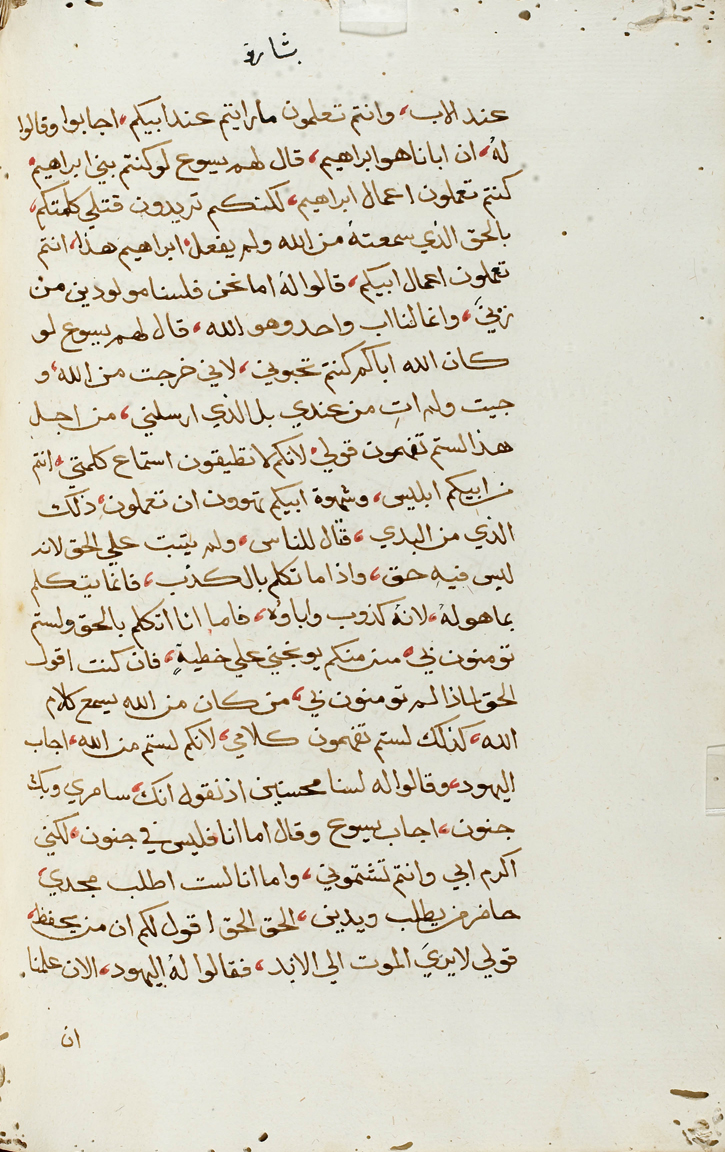 بشارة
عند الاب، وانتم تعلمون مارايتم عند ابيكم، اجابوا وقالوا
له، ان ابانا هو ابراهيم، قال لهم يسوع لوكنتم بني ابراهيم،
كنتم تعملون اعمال ابراهيم، لكنكم تريدون قتلي كلمتكم،
بالحق الذي سمعته من الله ولم يفعل ابراهيم هذا، انتم
تعملون اعمال ابيكم، قالوا له اما نحن فلسنا مولودين من
زني، وانما لنا اب واحد وهو الله، قال لهم يسوع لو
كان الله اباكم كنتم تحبوني، لاني خرجت من الله، و
جيت ولم ات من عندي بل الذي ارسلني، من اجل
هذا لستم تفهمون قولي، لانكم لا تطيقون استماع كلمتي، انتم
من ابيكم ابليس، وشهوة ابيكم تهوون ان تعملون، ذلك
الذي من البدي، قتال للناس، ولم يثبت علي الحق لانه
ليس فيه حق، واذا ما تكلم بالكذب، فانما يتكلم
بما هو له، لانه كذوب واباوه، فاما انا اتكلم بالحق ولستم
تومنون بي، من منكم يوبخني علي خطية، فان كنت اقول
الحق لماذا لم تومنون بي، من كان من الله يسمع كلام
الله، كذلك لستم تفهمون كلامي، لانكم لستم من الله، اجاب
اليهود، وقالوا له لسنا محسنين اذ نقول انك، سامري وبك
جنون، اجاب يسوع وقال اما انا فليس في جنون، لكنني
اكرم ابي وانتم تشتموني، واما انا لست اطلب مجدي،
حاضر من يطلب ويدين، الحق الحق اقول لكم ان من يحفظ،
قولي لا يري الموت الي الابد، فقالوا له اليهود، الان علمنا
ان